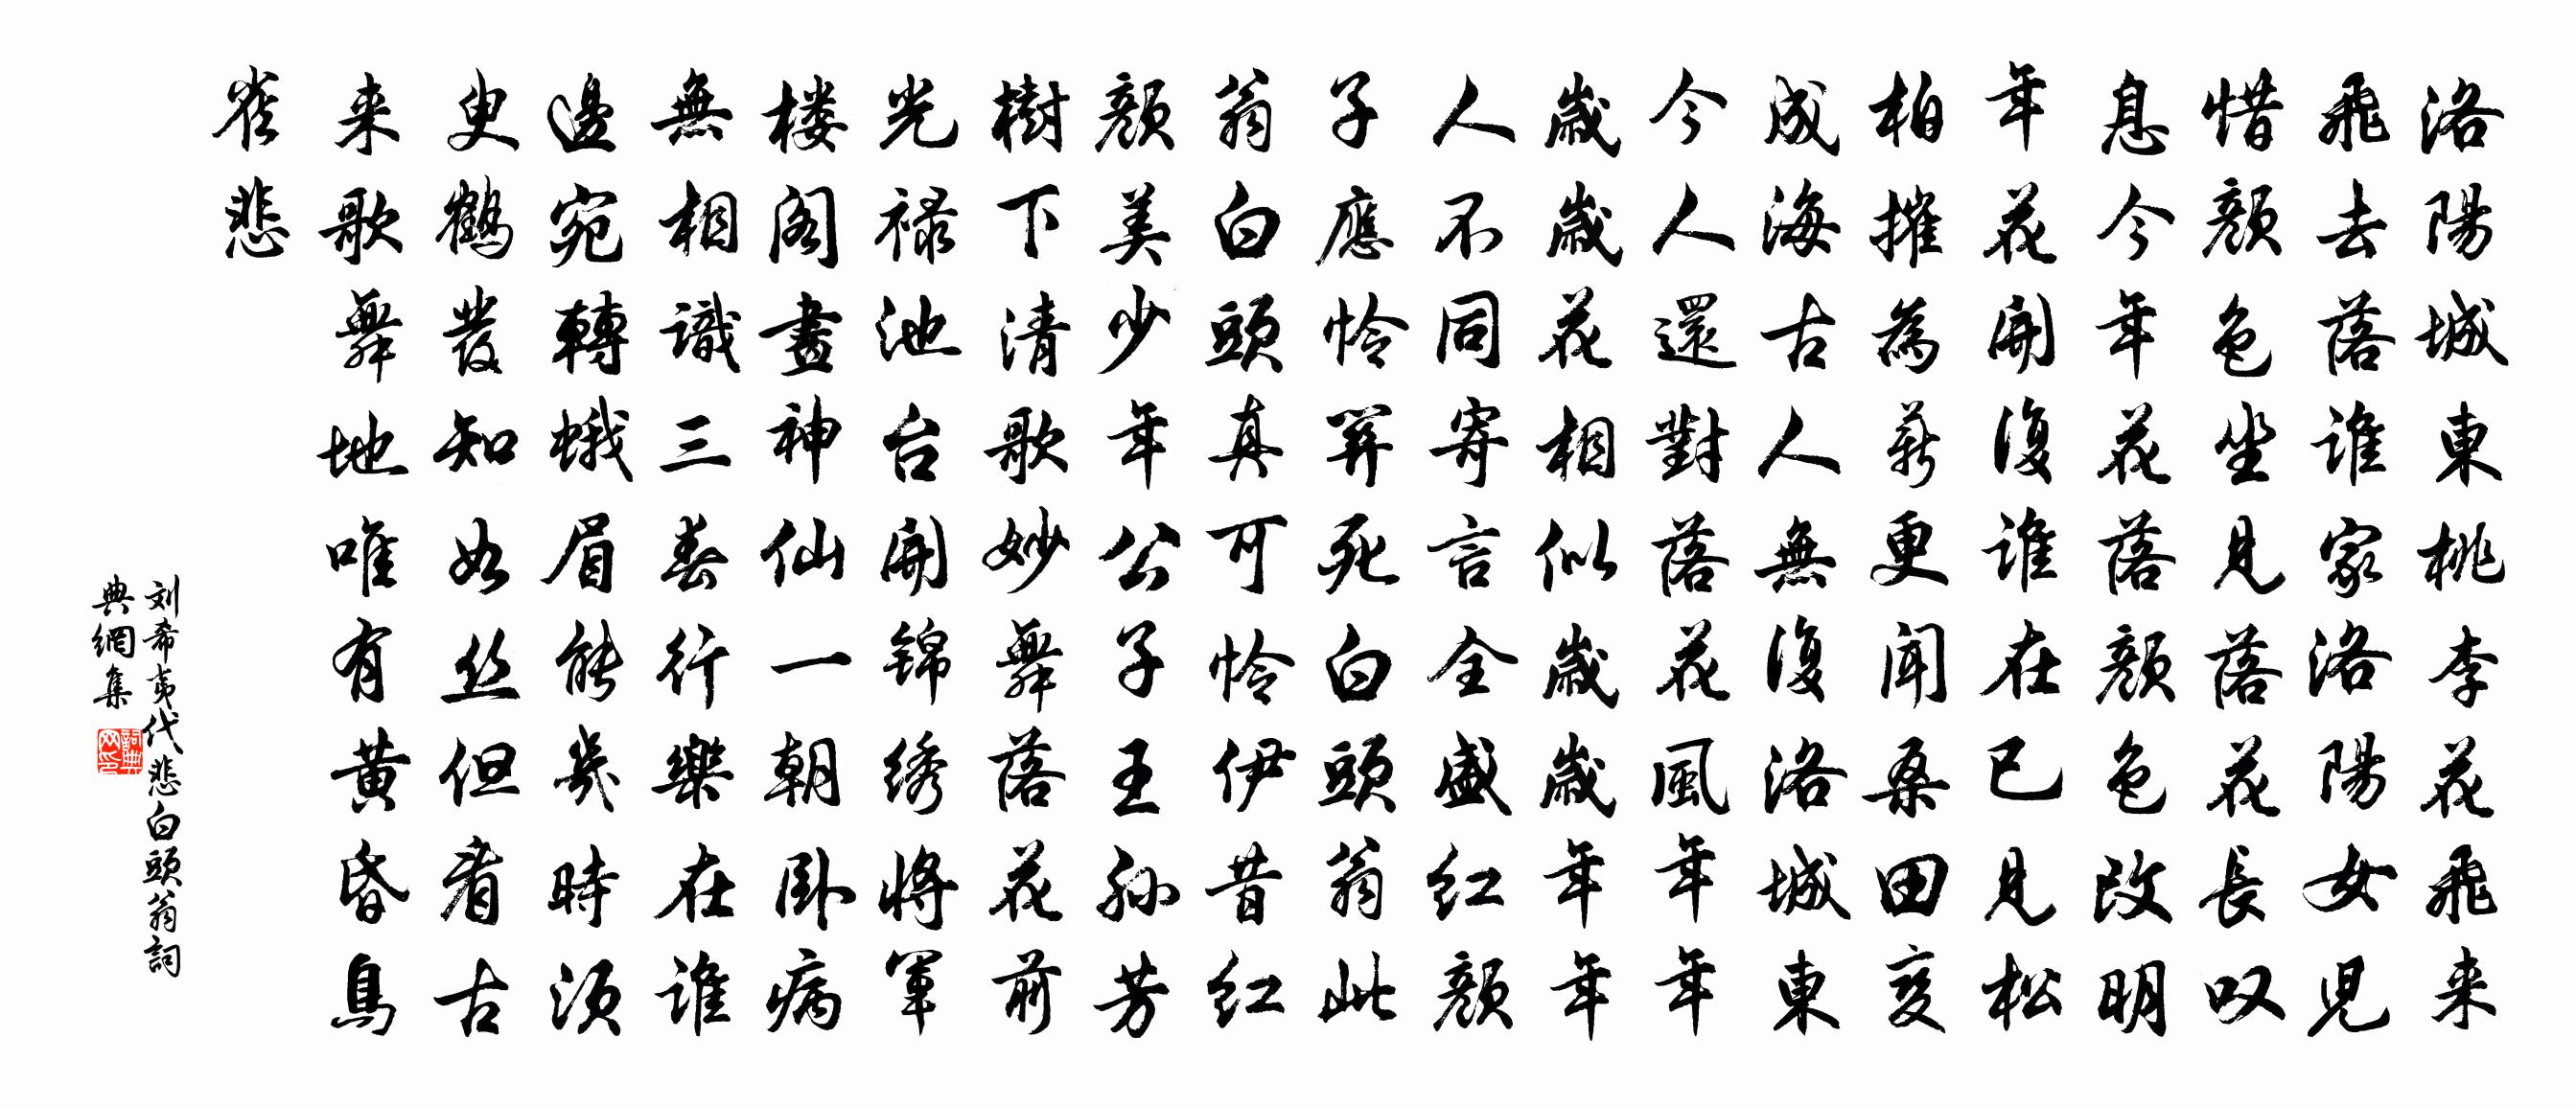 洛陽城東桃李花飛来
飛去落誰家洛陽女児
惜顔色坐見落花長叹
息今年花落顔色改明
年花開復誰在已見松
柏摧為薪更聞桑田変
成海古人無復洛城東
今人還對落花風年年
歳歳花相似歳歳年年
人不同寄言全盛红顔
子應怜半死白頭翁此
翁白頭真可怜伊昔红
顔美少年公子王孙芳
樹下清歌妙舞落花前
光禄池台開锦绣将軍
楼阁畫神仙一朝卧病
無相識三春行樂在誰
邊宛轉蛾眉能幾時須
臾鶴发知如丝但看古
来歌舞地唯有黄昏鳥
雀悲
刘希夷代悲白頭翁詞
典網集
詞典网印